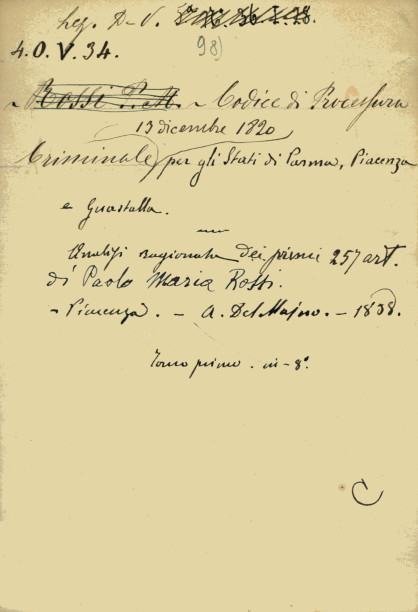 Leg. D-V.
4.O.V.34. 98)
- Rossi P. M. - Codice di Processura
13 dicembre 1820
Criminale, per gli Stati di Parma, Piacenza
e Guastalla.
Analisi ragionata dei primi 257 art.
di Paolo Maria Rossi.
- Piacenza. - A. Del Majno. - 1838.
Tomo primo. in-8°.
C